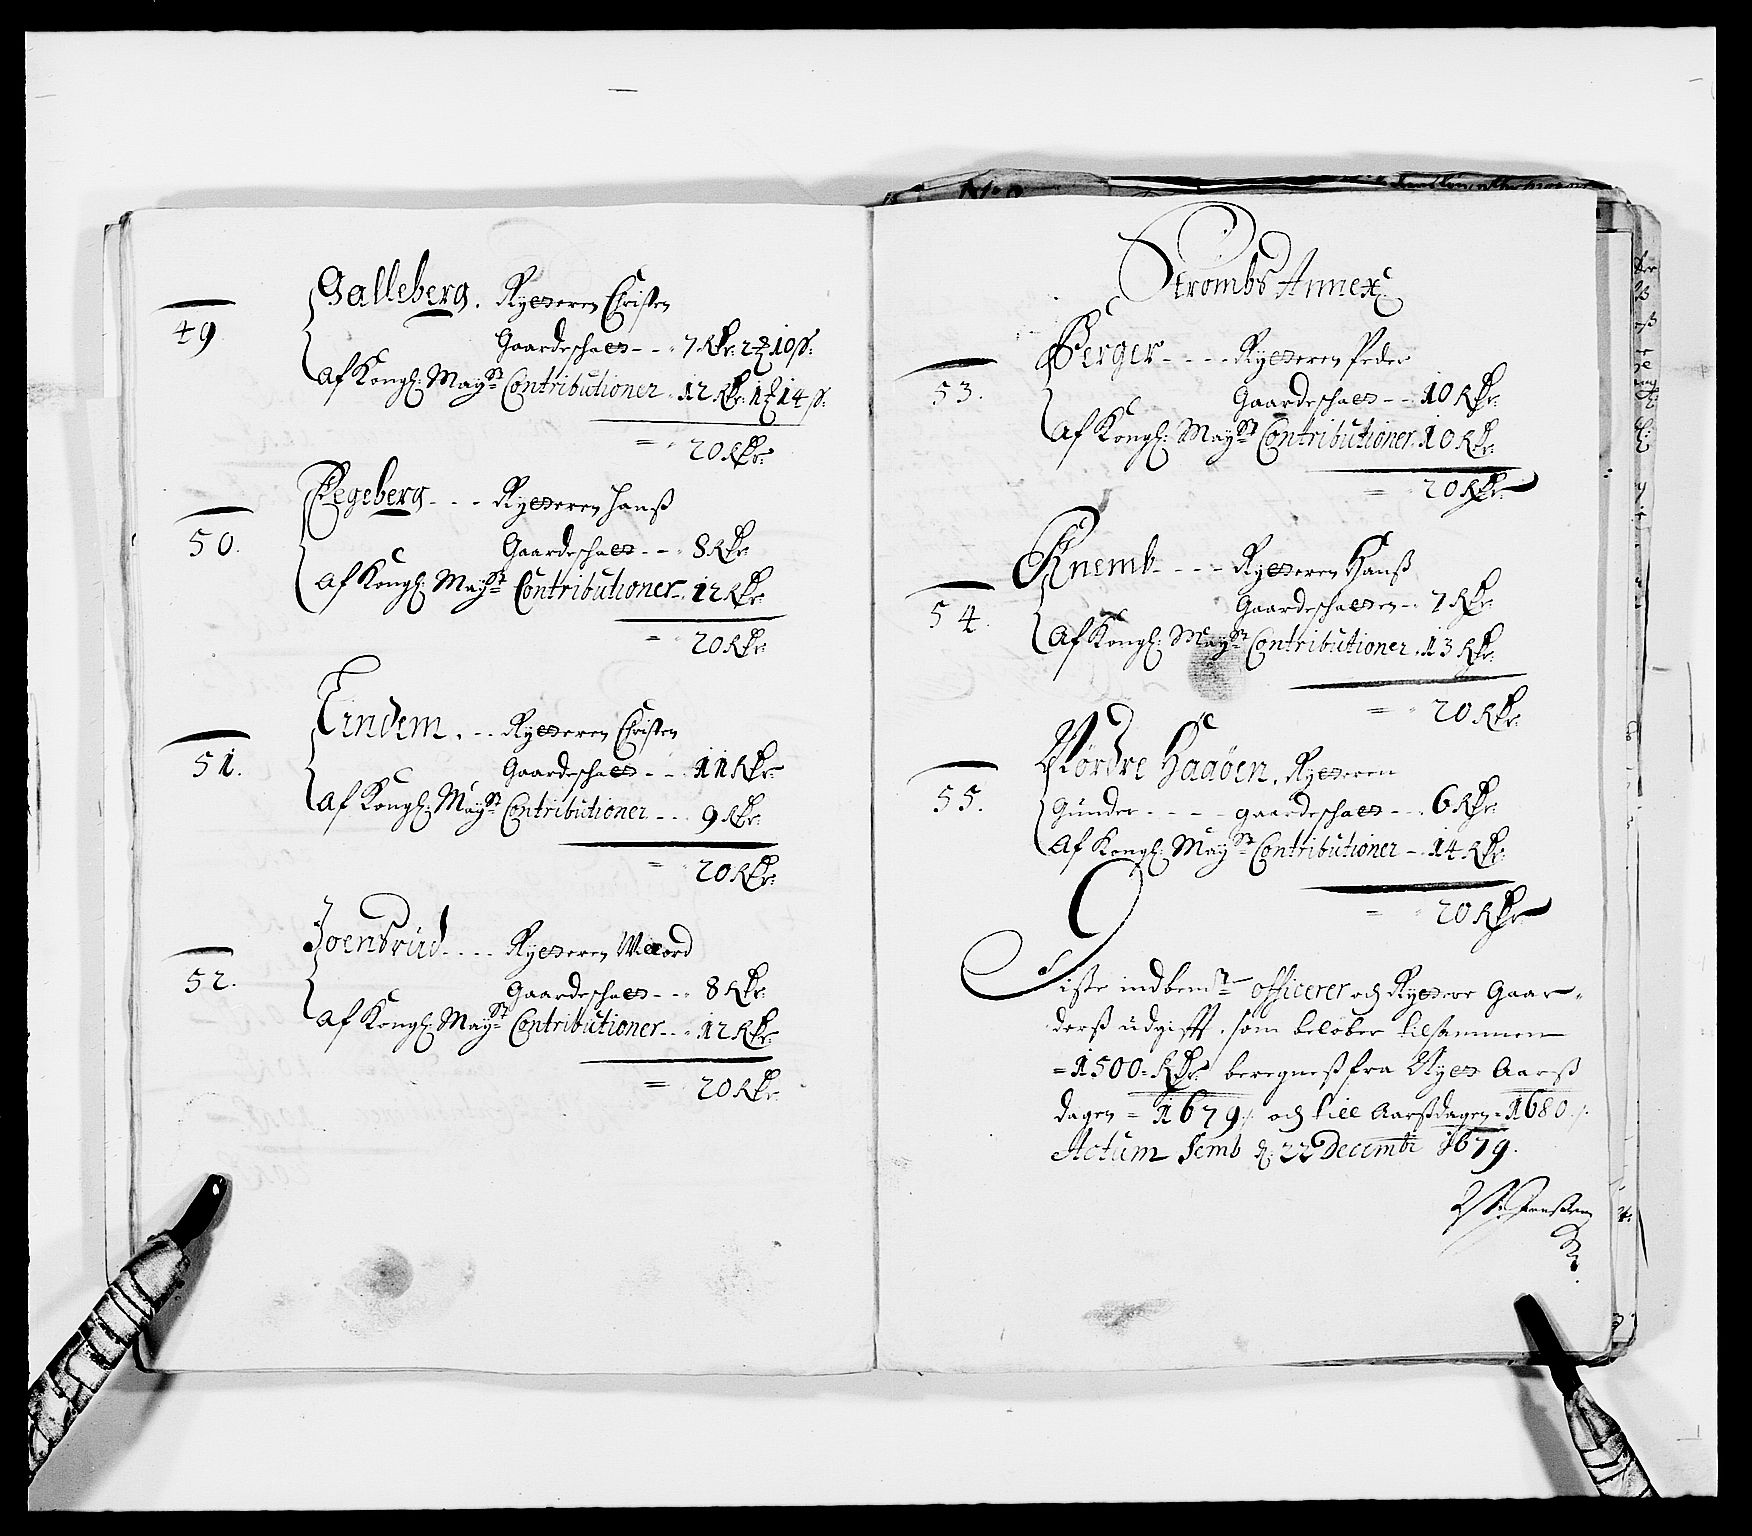 49
Galleberg. Rytteren Christen
Gaardeschatt - - 7 Rdr: 2 ₰ 10 s:
Af Kongl: Mayst: Contributioner 12 Rdr: 1 ₰ 14 s:
= 20 Rdr:
50.
Regeberg - - - Rytteren Hanß
Gaardeschatt - - 8 Rdr:
Af Kongl: Mayst: Contributioner - 12 Rdr:
= 20 Rdr:
51.
Lindem. - - Rytteren Christen
Gaardeschatt - - 11 Rdr:
Af Kongl: Mayst: Contributioner - - 9 Rdr:
= 20 Rdr:
52.
Joensrud - - - - Rytteren
Gaardeschatt - - 8 Rdr:
Af Kongl: Mayst: Contributioner - - 12 Rdr:
= 20 Rdr:
Strømbs Annex
53.
Berger - - - - Rytteren Peder
Gaardeschatt - - 10 Rdr:
Af Kongl: Mayst: Contributioner 10 Rdr:
= 20 Rdr:
54.
Knemb - - - - Rytteren Hanß
Gaardeschatten - 7 Rdr:
Af Kongl: Mayst: Contributioner 13 Rdr:
= 20 Rdr:
55.
Nørdre Haaøen. Rytteren
Gunder - - - - gaardeschatt - - 6 Rdr:
Af Kongl: Mayst: Contributioner - 14 Rdr:
= 20 Rdr:
Diße indbemt: officerer och Rytterne Gaar-
derß udgifft, som beløber tilsammen
= 1500 = Rdr: beregneß fra Nytt Aarß
dagen = 1679 /: och till Aarßdagen = 1680 /:
Actum Semb d: 22 Decembr 1679.